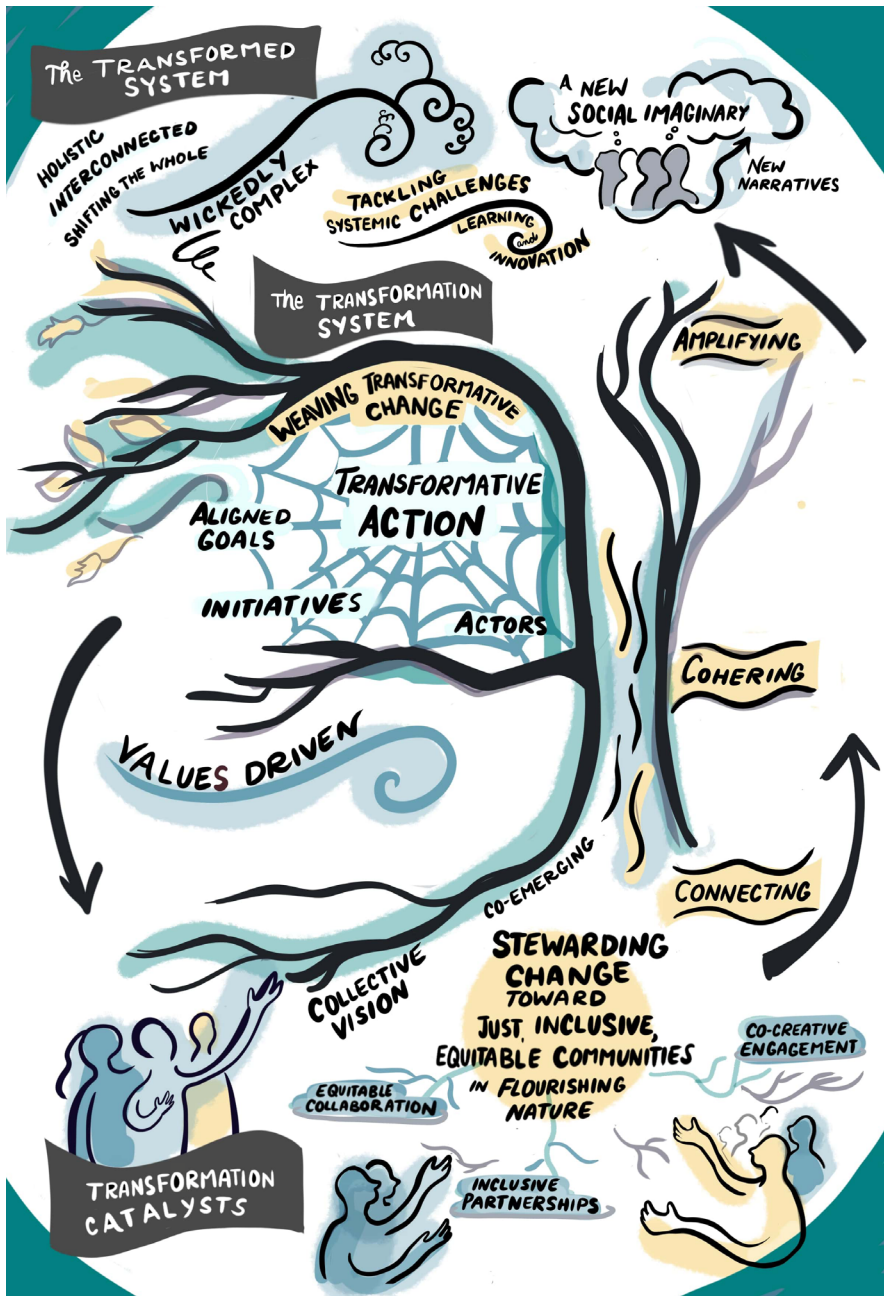 The TRANSFORMED
SYSTEM
HOLISTIC
INTERCONNECTED
SHIFTING THE WHOLE
WICKEDLY
COMPLEX
TACKLING
SYSTEMIC CHALLENGES
LEARNING
and
INNOVATION
A NEW
SOCIAL IMAGINARY
NEW
NARRATIVES
The TRANSFORMATION
SYSTEM
AMPLIFYING
WEAVING TRANSFORMATIVE
CHANGE
TRANSFORMATIVE
ACTION
ALIGNED
GOALS
INITIATIVES
ACTORS
COHERING
VALUES DRIVEN
CONNECTING
CO-EMERGING
COLLECTIVE
VISION
STEWARDING
CHANGE
TOWARD
JUST, INCLUSIVE,
EQUITABLE COMMUNITIES
IN FLOURISHING
NATURE
CO-CREATIVE
ENGAGEMENT
EQUITABLE
COLLABORATION
INCLUSIVE
PARTNERSHIPS
TRANSFORMATION
CATALYSTS